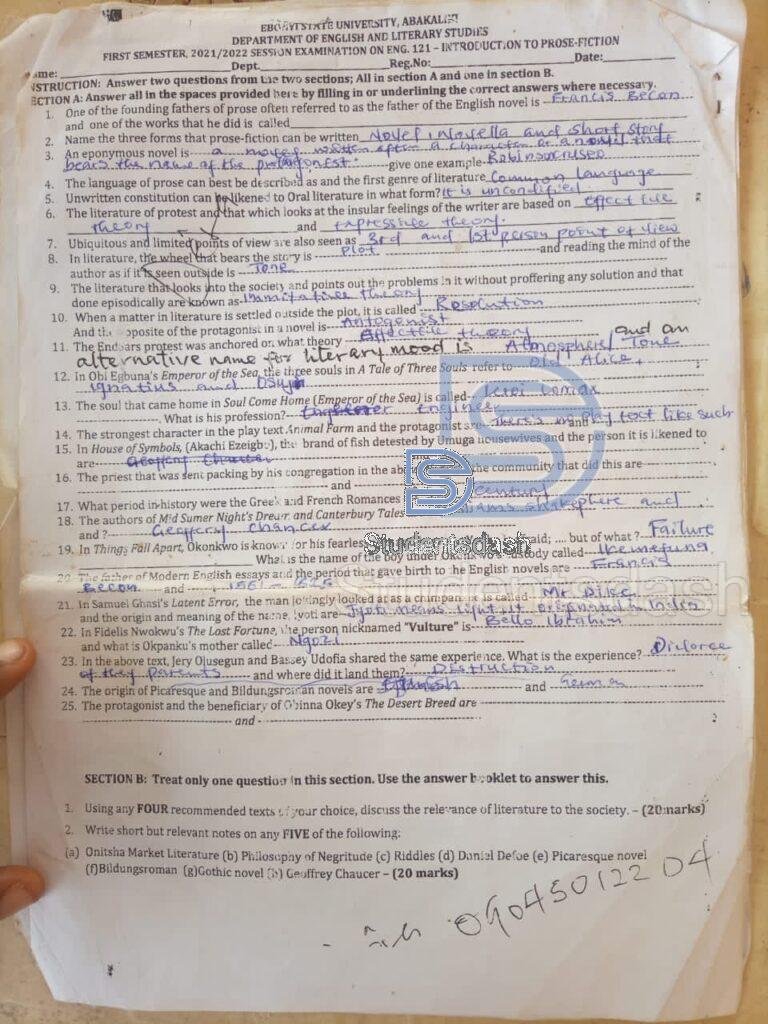 EBONYI STATE UNIVERSITY, ABAKALIKI
DEPARTMENT OF ENGLISH AND LITERARY STUDIES
FIRST SEMESTER, 2021/2022 SESSION EXAMINATION ON ENG. 121 – INTRODUCTION TO PROSE-FICTION
Name: Dept. Reg.No: Date:
INSTRUCTION: Answer two questions from the two sections; All in section A and one in section B.
SECTION A: Answer all in the spaces provided here by filling in or underlining the correct answers where necessary.
1. One of the founding fathers of prose often referred to as the father of the English novel is Francis Becon
and one of the works that he did is called
2. Name the three forms that prose-fiction can be written Novel, Novella and short story
3. An eponymous novel is a novel written after a character or a novel that
bears the name of the protagonest. give one example Robinsoncrusoe
4. The language of prose can best be described as and the first genre of literature Common language
5. Unwritten constitution can be likened to Oral literature in what form? It is uncodified.
6. The literature of protest and that which looks at the insular feelings of the writer are based on effective
theory and expressive theory.
7. Ubiquitous and limited points of view are also seen as 3rd and 1st person point of view
8. In literature, the wheel that bears the story is Plot and reading the mind of the
author as if it is seen outside is Tone
9. The literature that looks into the society and points out the problems in it without proffering any solution and that
done episodically are known as Immitative theory
10. When a matter in literature is settled outside the plot, it is called Resolution
And the opposite of the protagonist in a novel is Antogonist
11. The Endsars protest was anchored on what theory Affective theory and an
alternative name for literary mood is Atmosphere/ Tone
12. In Obi Egbuna's Emperor of the Sea, the three souls in A Tale of Three Souls refer to Old Alice,
Ignatius and Osuji
13. The soul that came home in Soul Come Home (Emperor of the Sea) is called
What is his profession? Engineer
14. The strongest character in the play text Animal Farm and the protagonist are There's no play text like such
15. In House of Symbols, (Akachi Ezeigbo), the brand of fish detested by Umuga housewives and the person it is likened to
are Geoffery Chaucer
16. The priest that was sent packing by his congregation in the above the community that did this are
and
17. What period in history were the Greek and French Romances century
18. The authors of Mid Sumer Night's Dream and Canterbury Tales Williams shakephere and
and ? Geoffery Chancer
19. In Things Fall Apart, Okonkwo is known for his fearless said; .... but of what? Failure
What is the name of the boy under Okonkwo's custody called Ikemefuna
20. The father of Modern English essays and the period that gave birth to the English novels are Francis
Becon and
21. In Samuel Ghasi's Latent Error, the man jokingly looked at as a chimpanzee is called Mr. Dilec
and the origin and meaning of the name Jyoti are Jyoti means light it originated in India
22. In Fidelis Nwokwu's The Lost Fortune, the person nicknamed "Vulture" is Bello Ibrahim
and what is Okpanku's mother called Ngozi
23. In the above text, Jery Olusegun and Bassey Udofia shared the same experience. What is the experience? Divorce
of they parents and where did it land them? Distruction
24. The origin of Picaresque and Bildungsroman novels are Spanish and German
25. The protagonist and the beneficiary of Obinna Okey's The Desert Breed are
and
Studentsdash
studentsdash
SECTION B: Treat only one question in this section. Use the answer booklet to answer this.
1. Using any FOUR recommended texts of your choice, discuss the relevance of literature to the society. – (20marks)
2. Write short but relevant notes on any FIVE of the following:
(a) Onitsha Market Literature (b) Philosophy of Negritude (c) Riddles (d) Daniel Defoe (e) Picaresque novel
(f)Bildungsroman (g)Gothic novel (h) Geoffrey Chaucer – (20 marks)
09045012204